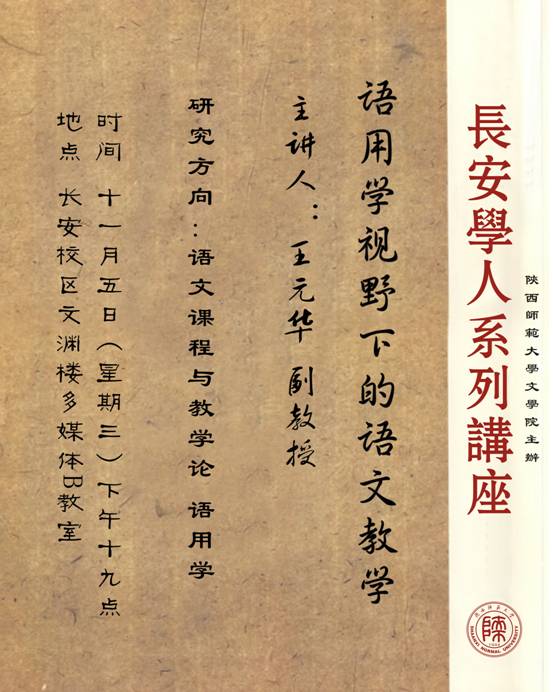 陝西師範大學文學院主辦
長安學人系列講座
语用学视野下的语文教学
主讲人：王元华 副教授
研究方向：语文课程与教学论 语用学
时间 十一月五日（星期三）下午十九点
地点 长安校区文渊楼多媒体B教室
SHAANXI NORMAL UNIVERSITY